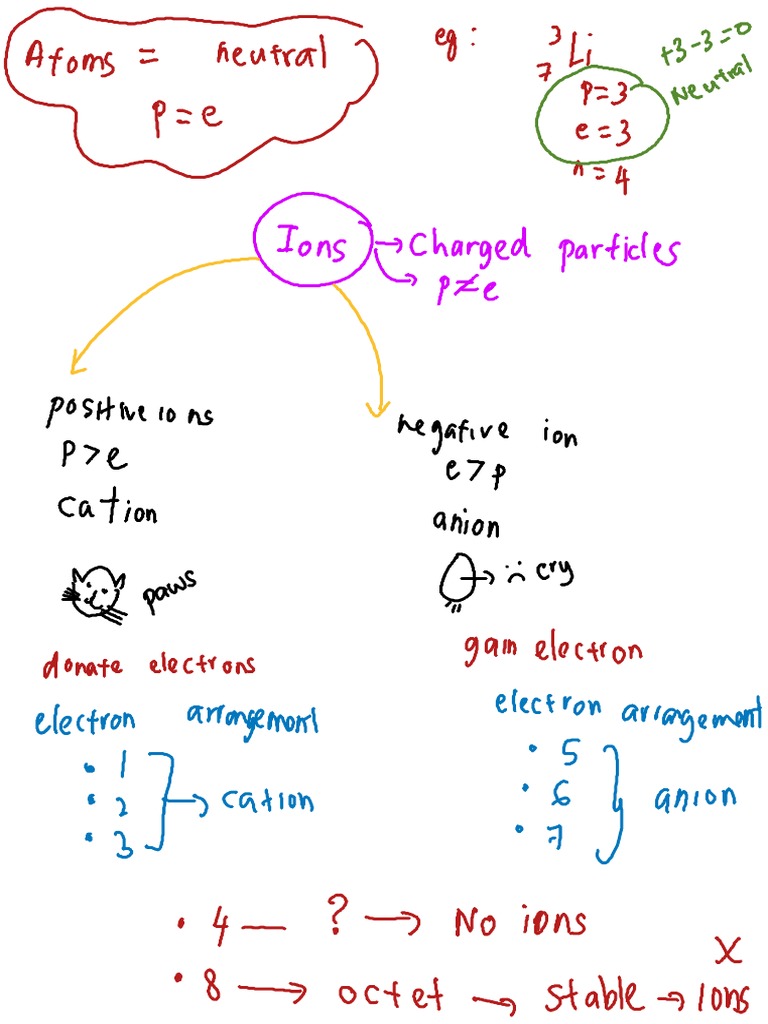 Atoms = neutral
p = e
eg:
3
Li
7
p = 3
e = 3
n = 4
+3-3=0
Neutral
Ions → Charged particles
→ p≠e
positive ions
p > e
cation
paws
donate electrons
electron arrangement
• 1
• 2
• 3
→ cation
negative ion
e > p
anion
→ :( cry
gain electron
electron arrangement
• 5
• 6
• 7
anion
• 4 — ? → No ions
• 8 → octet → stable → Ions
X